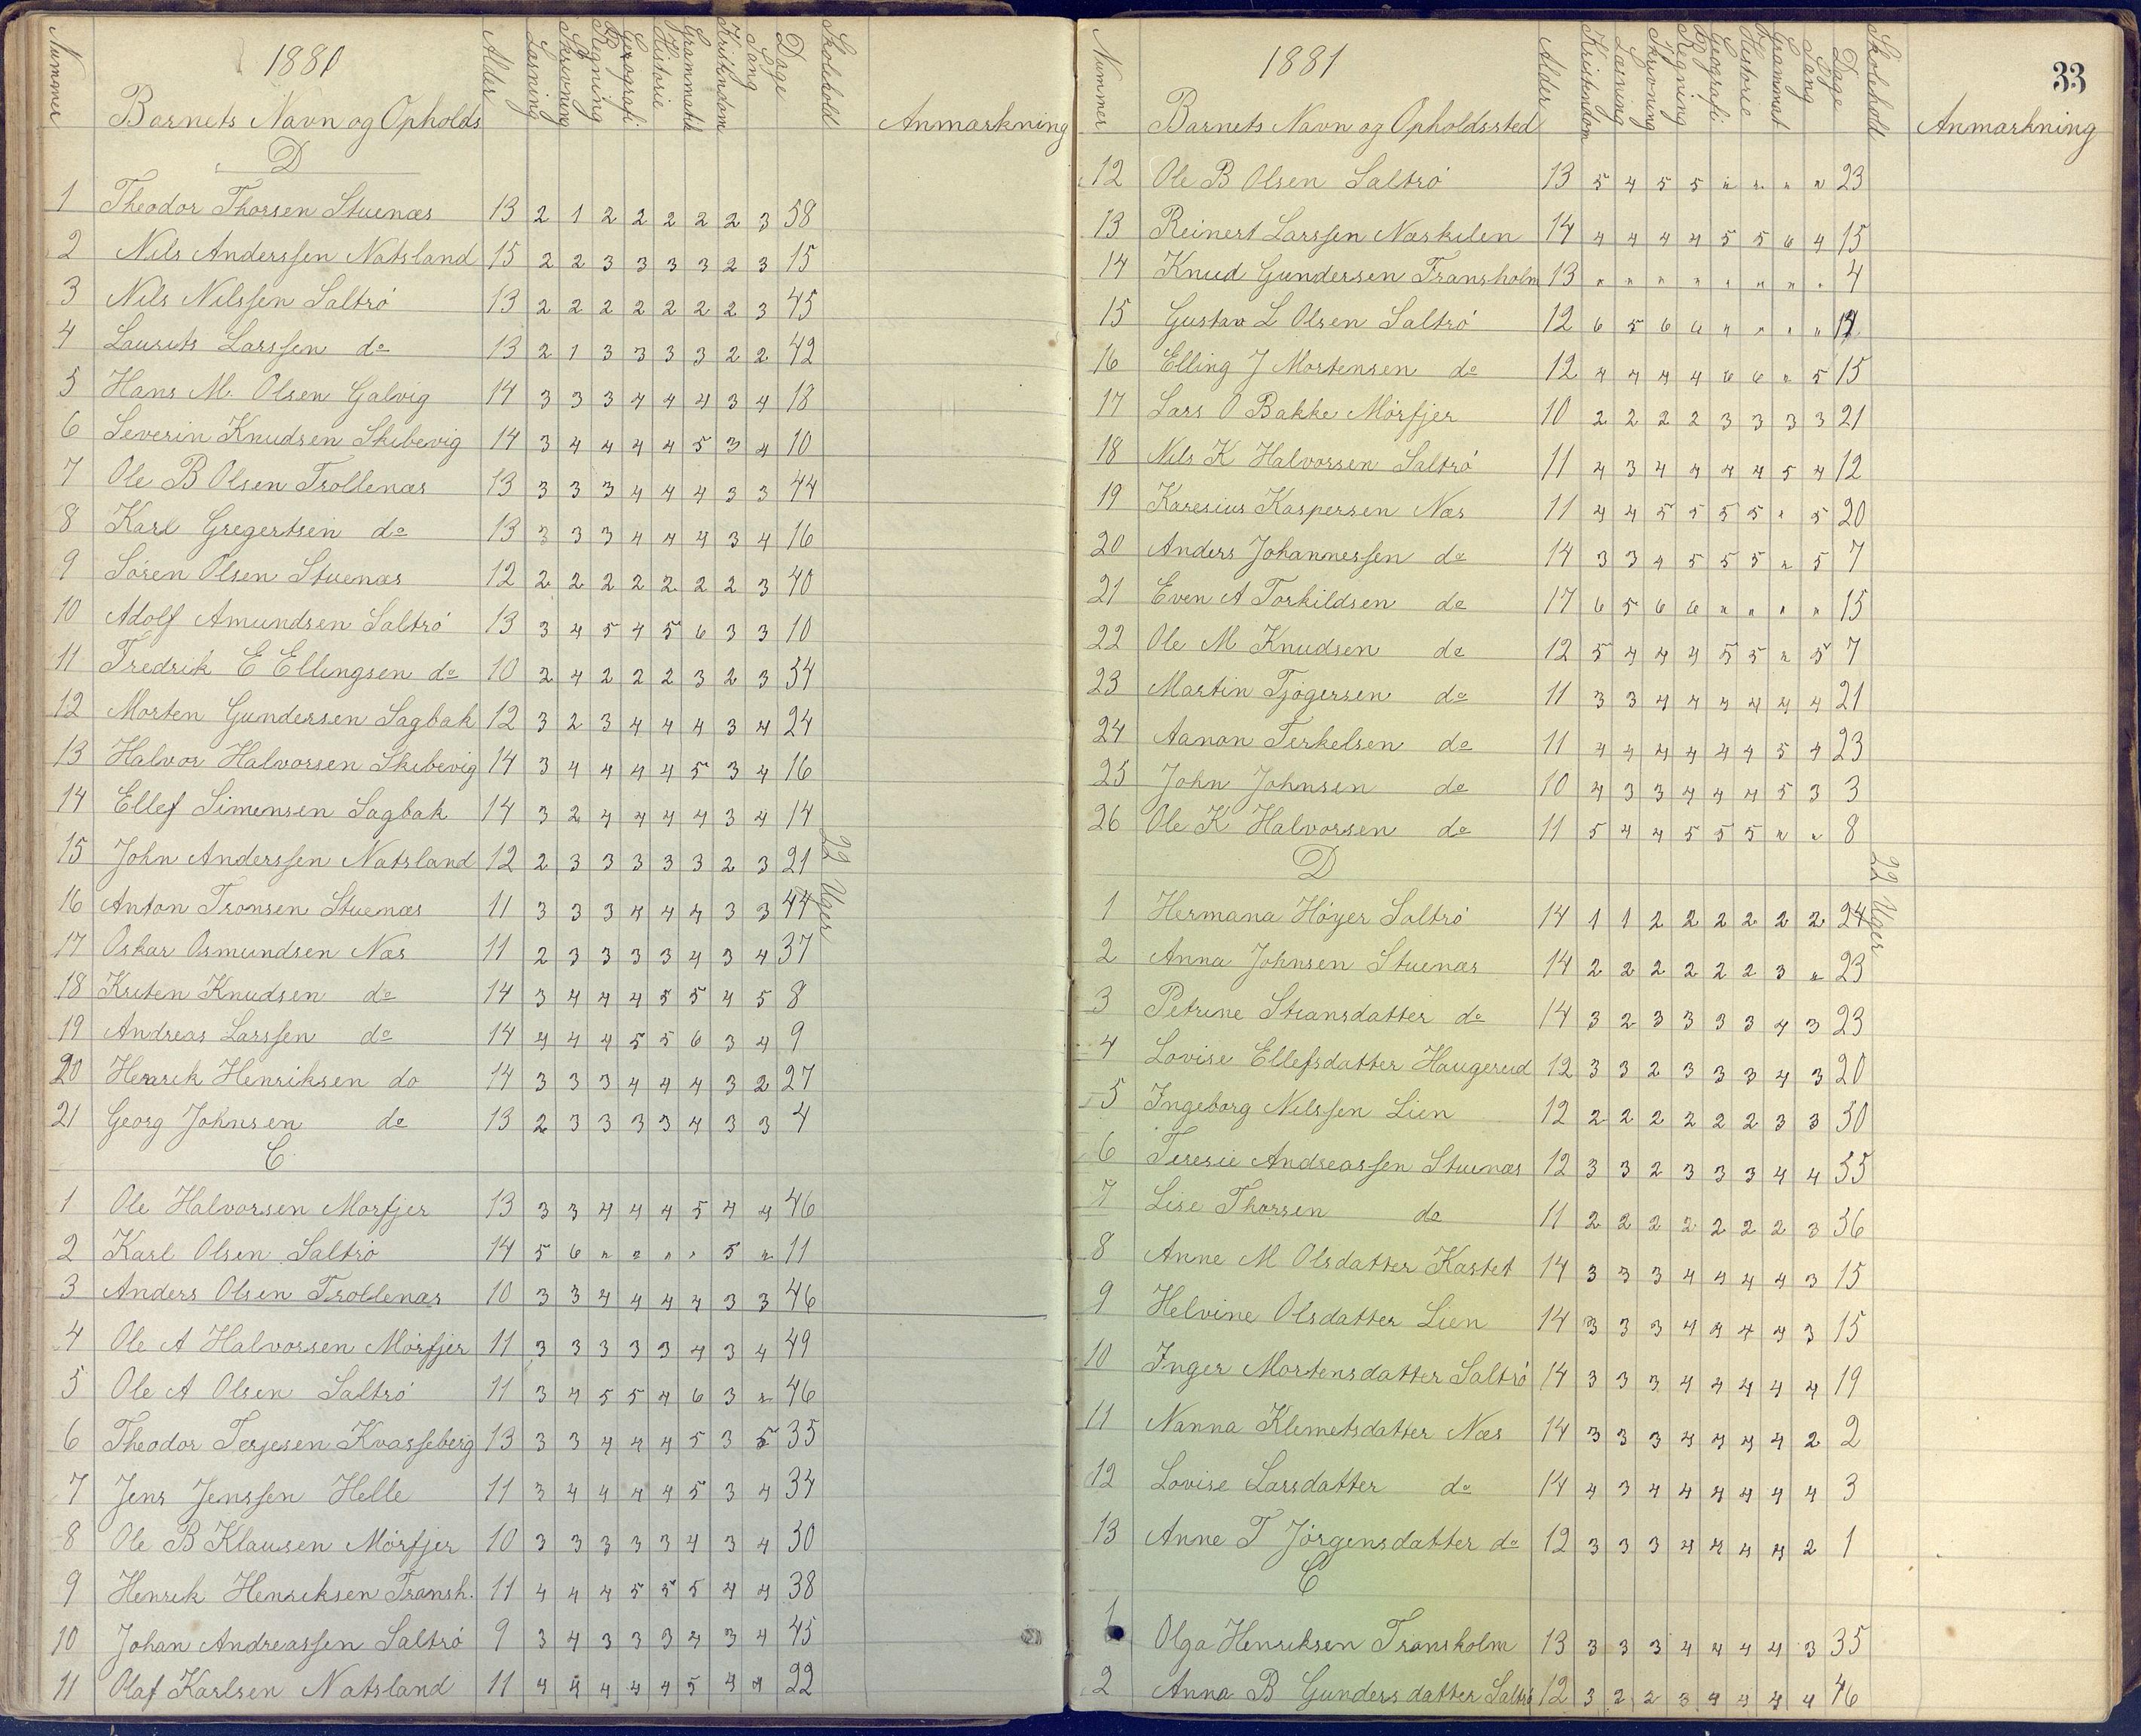 Nummer 1881 Barnets Navn og Opholds Alder Læsning Skrivning Regning Geografi Historie Grammatik Kristindom Sang Dage Skolehold Anmærkning
D
1 Theodor Thorsen Stuenæs 13 2 1 2 2 2 2 2 3 58
2 Nils Anderssen Natsland 15 2 2 3 3 3 3 2 3 15
3 Nils Nilssen Saltrö 13 2 2 2 2 2 2 2 3 45
4 Laurits Larssen do 13 2 1 3 3 3 3 2 2 42
5 Hans M. Olsen Galvig 14 3 3 3 4 4 4 3 4 18
6 Severin Knudsen Skibevig 14 3 4 4 4 4 5 3 4 10
7 Ole B Olsen Trollenæs 13 3 3 3 4 4 4 3 3 44
8 Karl Gregertsen do 13 3 3 3 4 4 4 3 4 16
9 Sören Olsen Stuenæs 12 2 2 2 2 2 2 2 3 40
10 Adolf Amundsen Saltrö 13 3 4 5 4 5 6 3 3 10
11 Fredrik E Ellingsen do 10 2 4 2 2 2 3 2 3 54
12 Morten Gundersen Sagbak 12 3 2 3 4 4 4 3 4 24
13 Halvor Halvorsen Skibevig 14 3 4 4 4 4 5 3 4 16
14 Ellef Simensen Sagbak 14 3 2 4 4 4 4 3 4 14
15 John Anderssen Natsland 12 2 3 3 3 3 3 2 3 21 22 Uger
16 Anton Tronsen Stuenæs 11 3 3 3 4 4 4 3 3 44
17 Oskar Osmundsen Næs 11 2 3 3 3 3 4 3 4 37
18 Kristen Knudsen do 14 3 4 4 4 5 5 4 5 8
19 Andreas Larssen do 14 4 4 4 5 5 6 3 4 9
20 Henrik Henriksen do 14 3 3 3 4 4 4 3 2 27
21 Georg Johnsen do 13 2 3 3 3 3 4 3 3 4
C
1 Ole Halvorsen Morfjer 13 3 3 4 4 4 5 4 4 46
2 Karl Olsen Saltrö 14 5 6 " " " " 5 " 11
3 Anders Olsen Trollenæs 10 3 3 4 4 4 4 3 3 46
4 Ole A Halvorsen Mörfjer 11 3 3 3 3 3 4 3 4 49
5 Ole A Olsen Saltrö 11 3 4 5 5 4 6 3 " 46
6 Theodor Terjesen Kvasseberg 13 3 3 4 4 4 5 3 5 35
7 Jens Jenssen Helle 11 3 4 4 4 4 5 3 4 34
8 Ole B Klausen Mörfjer 10 3 3 3 3 3 4 3 4 30
9 Henrik Henriksen Transh. 11 4 4 4 5 5 5 4 4 38
10 Johan Andreassen Saltrö 9 3 4 3 3 3 4 3 4 45
11 Olaf Karlsen Natsland 11 4 4 4 4 4 5 4 4 22
33
Nummer 1881 Barnets Navn og Opholdssted Alder Kristindom Læsning Skrivning Regning Geografi Historie Grammat Sang Dage Skolehold Anmærkning
12 Ole B Olsen Saltrö 13 5 4 5 5 " " " " 23
13 Reinert Larssen Næskilen 14 4 4 4 4 5 5 6 4 15
14 Knud Gundersen Transholm 13 " " " " " " " " 4
15 Gustav L Olsen Saltrö 12 6 5 6 6 " " " "
16 Elling J Mortensen do 12 4 4 4 4 6 6 " 5 15
17 Lars O Bakke Mörfjer 10 2 2 2 2 3 3 3 3 21
18 Nils K Halvorsen Saltrö 11 4 3 4 4 4 4 5 4 12
19 Karesius Kaspersen Næs 11 4 4 5 5 5 5 " 5 20
20 Anders Johannessen do 14 3 3 4 5 5 5 " 5 7
21 Even A Torkildsen do 17 6 5 6 6 " " " " 15
22 Ole M Knudsen do 12 5 4 4 4 5 5 " 5 7
23 Martin Tjögersen do 11 3 3 4 4 4 4 4 4 21
24 Aanon Terkelsen do 11 4 4 4 4 4 4 5 4 23
25 John Johnsen do 10 4 3 3 4 4 4 5 3 3
26 Ole K Halvorsen do 11 5 4 4 5 5 5 " " 8
D
22 Uger
1 Hermana Höyer Saltrö 14 1 1 2 2 2 2 2 2 24
2 Anna Johnsen Stuenæs 14 2 2 2 2 2 2 3 " 23
3 Petrine Stiansdatter do 14 3 2 3 3 3 3 4 3 23
4 Lovise Ellefsdatter Haugerud 12 3 3 2 3 3 3 4 3 20
5 Ingeborg Nilssen Lien 12 2 2 2 2 2 2 3 3 50
6 Teresie Andreassen Stuenæs 12 3 3 2 3 3 3 4 4 55
7 Lise Thorsen do 11 2 2 2 2 2 2 2 3 36
8 Anne M Olsdatter Kastet 14 3 3 3 4 4 4 4 3 15
9 Helvine Olsdatter Lien 14 3 3 3 4 4 4 4 3 15
10 Inger Mortensdatter Saltrö 14 3 3 3 4 4 4 4 4 19
11 Nanna Klemetsdatter Næs 14 3 3 3 4 4 4 4 2 2
12 Lovise Larsdatter do 14 4 3 4 4 4 4 4 4 3
13 Anne T Jörgensdatter do 12 3 3 3 4 4 4 4 2 1
C
1 Olga Henriksen Transholm 13 3 3 3 4 4 4 4 3 35
2 Anna B Gundersdatter Saltrö 12 3 2 2 3 4 4 4 4 46